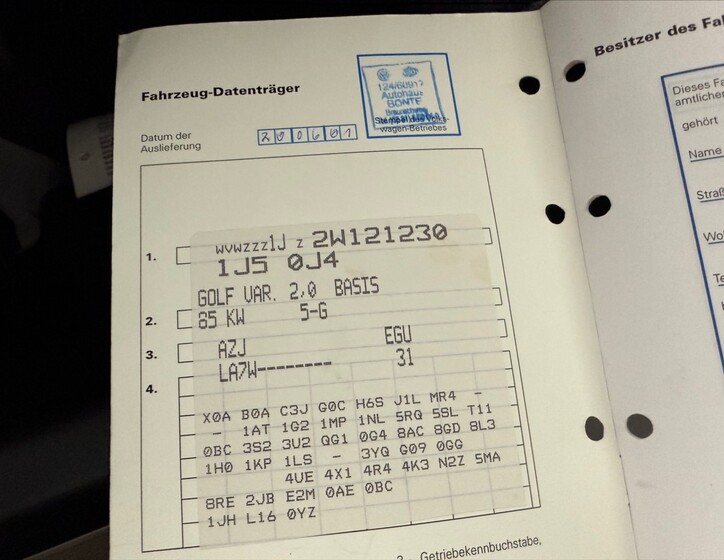 Besitzer des Fa
Fahrzeug-Datenträger
124/60917
Autohaus
BONTE
Stempel des Volks-
wagen-Betriebes
Datum der
Auslieferung
200601
Dieses Fa
amtlicher
gehört
Name
Straß
Wo
Te
1.
WVWZZZ1J Z 2W121230
1J5 0J4
GOLF VAR. 2,0 BASIS
2.
85 KW 5-G
3.
AZJ EGU
LA7W-------- 31
4.
X0A B0A C3J G0C H6S J1L MR4 -
- 1AT 1G2 1MP 1NL 5RQ 5SL T11
0BC 3S2 3U2 QG1 0G4 8AC 8GD 8L3
1H0 1KP 1LS - 3YQ G09 0GG
4UE 4X1 4R4 4K3 N2Z 5MA
8RE 2JB E2M 0AE 0BC
1JH L16 0YZ
Getriebekennbuchstabe,